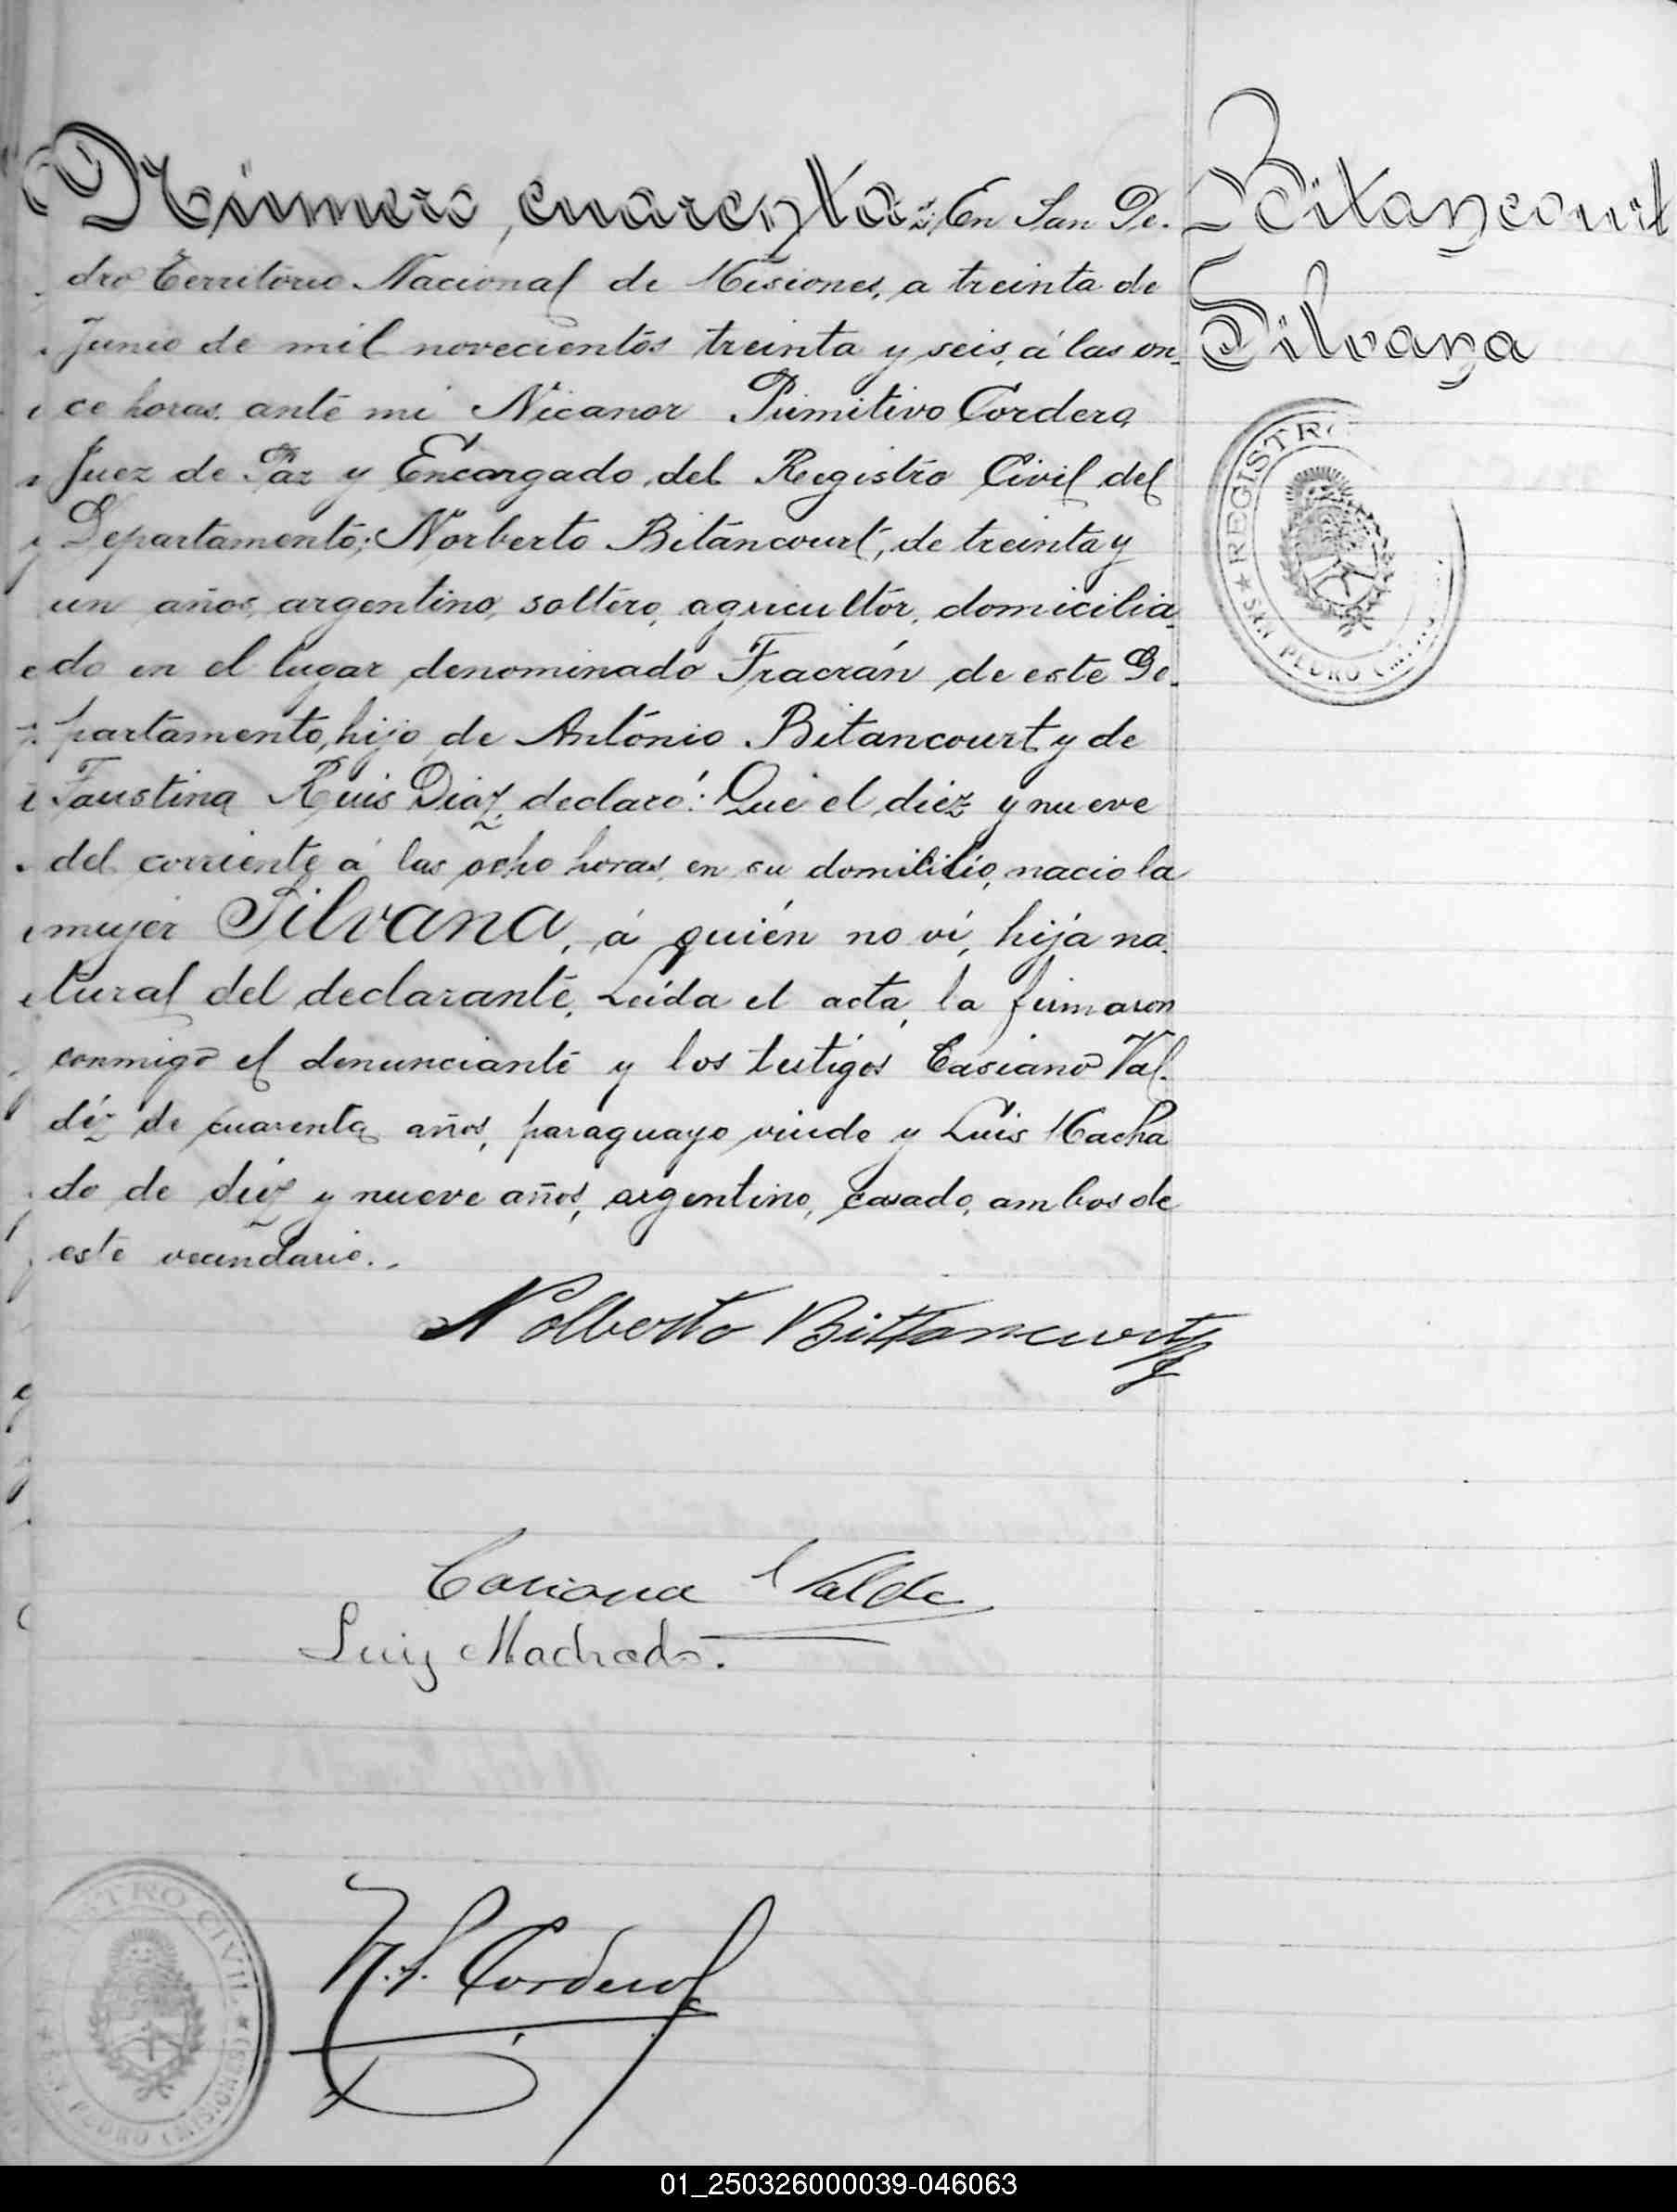 Número cuarenta: En San Pe-
dro Territorio Nacional de Misiones, a treinta de
Junio de mil novecientos treinta y seis, á las on-
ce horas, ante mi Nicanor Primitivo Cordero,
Juez de Paz y Encargado del Registro Civil del
Departamento; Norberto Bitancourt, de treinta y
un años, argentino, soltero, agricultor, domicilia-
do en el lugar denominado Fracrán de este De-
partamento, hijo de Antonio Bitancourt y de
Faustina Ruis Diaz, declaró: Que el diez y nueve
del corriente á las ocho horas, en su domicilio, nacio la
mujer Silvana, á quién no ví, hija na-
tural del declarante. Leída el acta, la firmaron
conmigo el denunciante y los testigos Casiano Val-
déz de cuarenta años, paraguayo viudo y Luis Macha
do de diez y nueve años, argentino, casado, ambos de
este vecindario.
Bitancourt
Silvana
REGISTRO
★ SAN PEDRO (MI
Nolberto Bittancurt
Casiana Valde
Luiz Machado.
N.P. Cordero
REGISTRO CIVIL ★
★ SAN PEDRO (MISIONES)
01_250326000039-046063